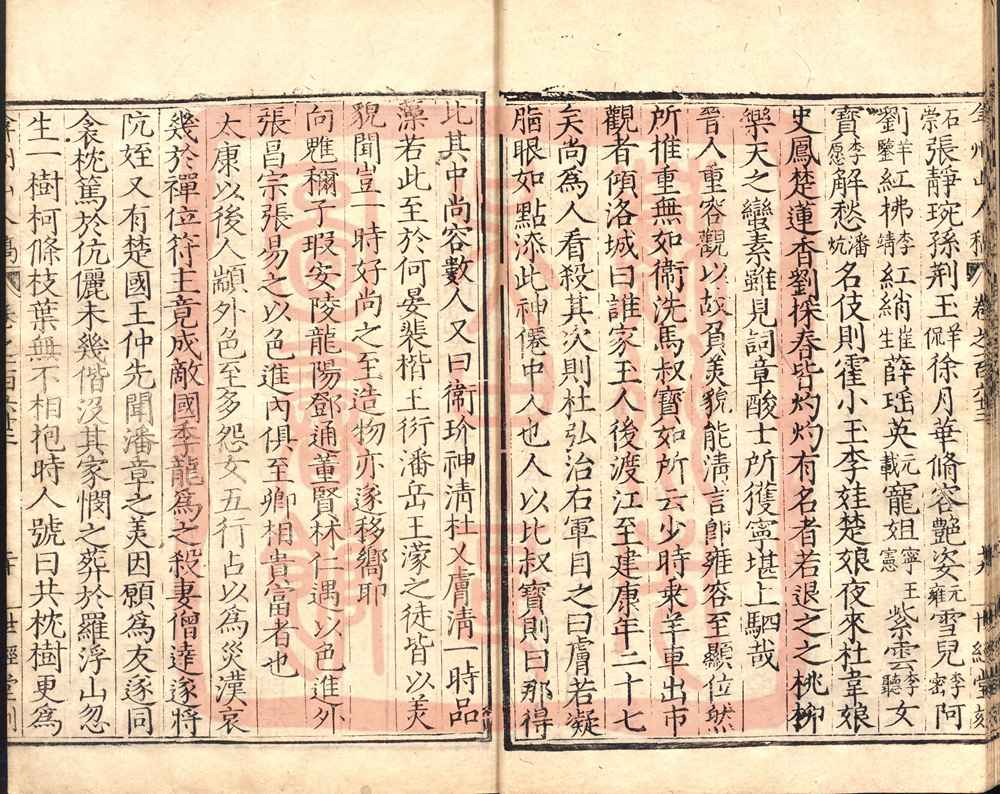 弇州山人稿 卷之一百六十三 世經堂刻
石崇張靜琬孫荆玉羊侃徐月華脩容艷姿元雍雪兒李密阿
劉羊鑒紅拂李靖紅綃崔生薛瑤英元載寵姐寧王憲紫雲李聽女
寶李愿解愁潘炕名伎則霍小玉李娃楚娘夜來杜韋娘
史鳳楚蓮香劉採春皆灼灼有名者若退之之桃柳
樂天之蠻素雖見詞章酸士所獲寧堪上駟哉
晉人重容觀以故負美貌能清言卽雍容至顯位然
所推重無如衛洗馬叔寶如所云少時乘羊車出市
觀者傾洛城曰誰家玉人後渡江至建康年二十七
矣尚爲人看殺其次則杜弘治右軍目之曰膚若凝
脂眼如點漆此神僊中人也人以比叔寶則曰那得
比其中尚容數人又曰衛玠神清杜乂膚清一時品
藻若此至於何晏裴楷王衍潘岳王濛之徒皆以美
貌聞豈一時好尚之至造物亦遂移嚮耶
向魋穪子瑕安陵龍陽鄧通董賢秣仁遇以色進外
張昌宗張易之以色進內俱至卿相貴富者也
太康以後人顓外色至多怨女五行占以爲災漢哀
幾於禪位符主竟成敵國季龍爲之殺妻僧達遂將
阬姪又有楚國王仲先聞潘章之美因願爲友遂同
衾枕篤於伉儷未幾偕沒其家憫之葬於羅浮山忽
生一樹柯條枝葉無不相抱時人號曰共枕樹更爲